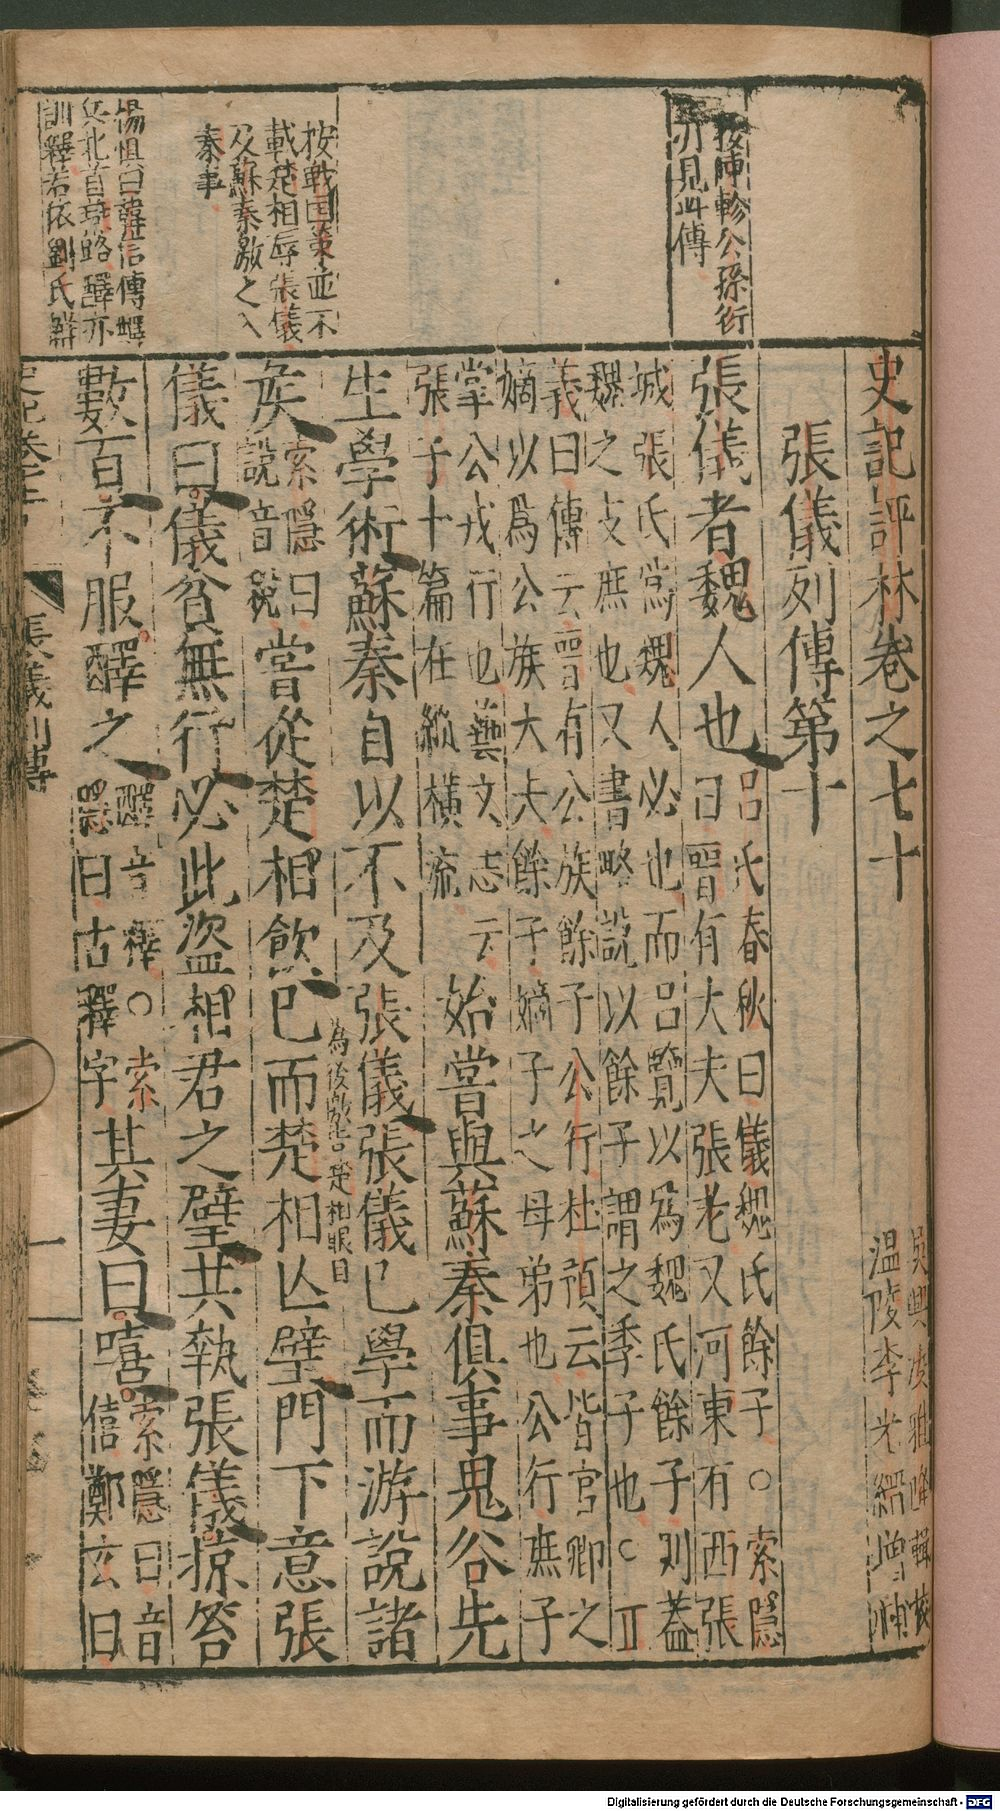 史記評林卷之七十
吳興凌雅隆輯校
溫陵李光縉增補
張儀列傳第十
按陳軫公孫衍
乃見此傳
張儀者魏人也
呂氏春秋曰儀魏氏餘子○索隱
曰晉有大夫張老又河東有西張
城張氏爲魏人必也而呂覽以爲魏氏餘子則蓋
魏之支庶也又書略說以餘子謂之季子也○正
義曰傳云晉有公族餘子公行杜預云皆官卿之
嫡以爲公族大夫餘子嫡子之母弟也公行庶子
掌公戎行也藝文志云
張子十篇在縱橫流
始嘗與蘇秦俱事鬼谷先
生學術蘇秦自以不及張儀張儀已學而游說諸
爲後激告楚相眼目
侯
索隱曰
說音稅
嘗從楚相飲已而楚相亡璧門下意張
按戰国策並不
載楚相辱張儀
及蘇秦激之入
秦事
儀曰儀貧無行必此盜相君之璧共執張儀掠笞
數百不服醳之
醳音釋○索
隱曰古釋字
其妻曰嘻
索隱曰音
僖鄭玄曰
楊愼曰韓信傳醳
兵北首燕路醳亦
訓釋若依劉氏
史記卷七十
張儀列傳
一
Digitalisierung gefördert durch die Deutsche Forschungsgemeinschaft - DFG